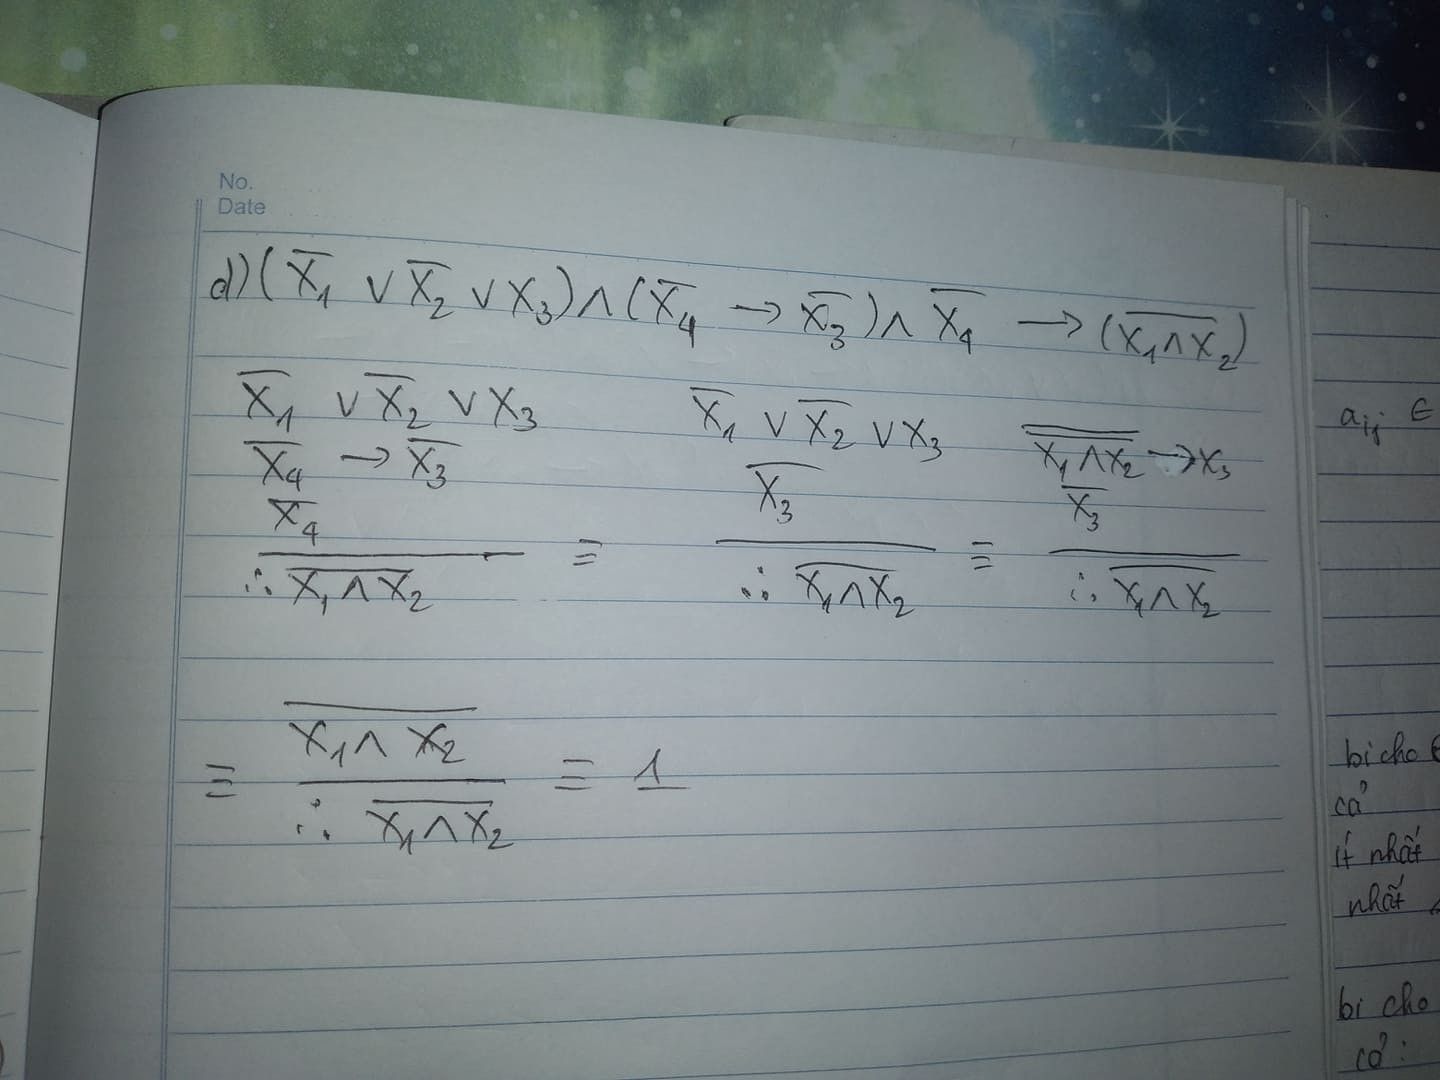 No.
Date
d) (X̅₁ ∨ X̅₂ ∨ X₃) ∧ (X̅₄ → X̅₃) ∧ X̅₄ → (\overline{X₁ ∧ X₂})
X̅₁ ∨ X̅₂ ∨ X₃
X̅₄ → X̅₃
X̅₄
∴ \overline{X₁ ∧ X₂}
≡
X̅₁ ∨ X̅₂ ∨ X₃
X̅₃
∴ \overline{X₁ ∧ X₂}
≡
\overline{\overline{X₁ ∧ X₂}} → X₃
X̅₃
∴ \overline{X₁ ∧ X₂}
≡
\overline{X₁ ∧ X₂}
∴ \overline{X₁ ∧ X₂}
≡ 1
aᵢⱼ ∈
bi cho
cả
ít nhất
nhất
bi cho
cở: